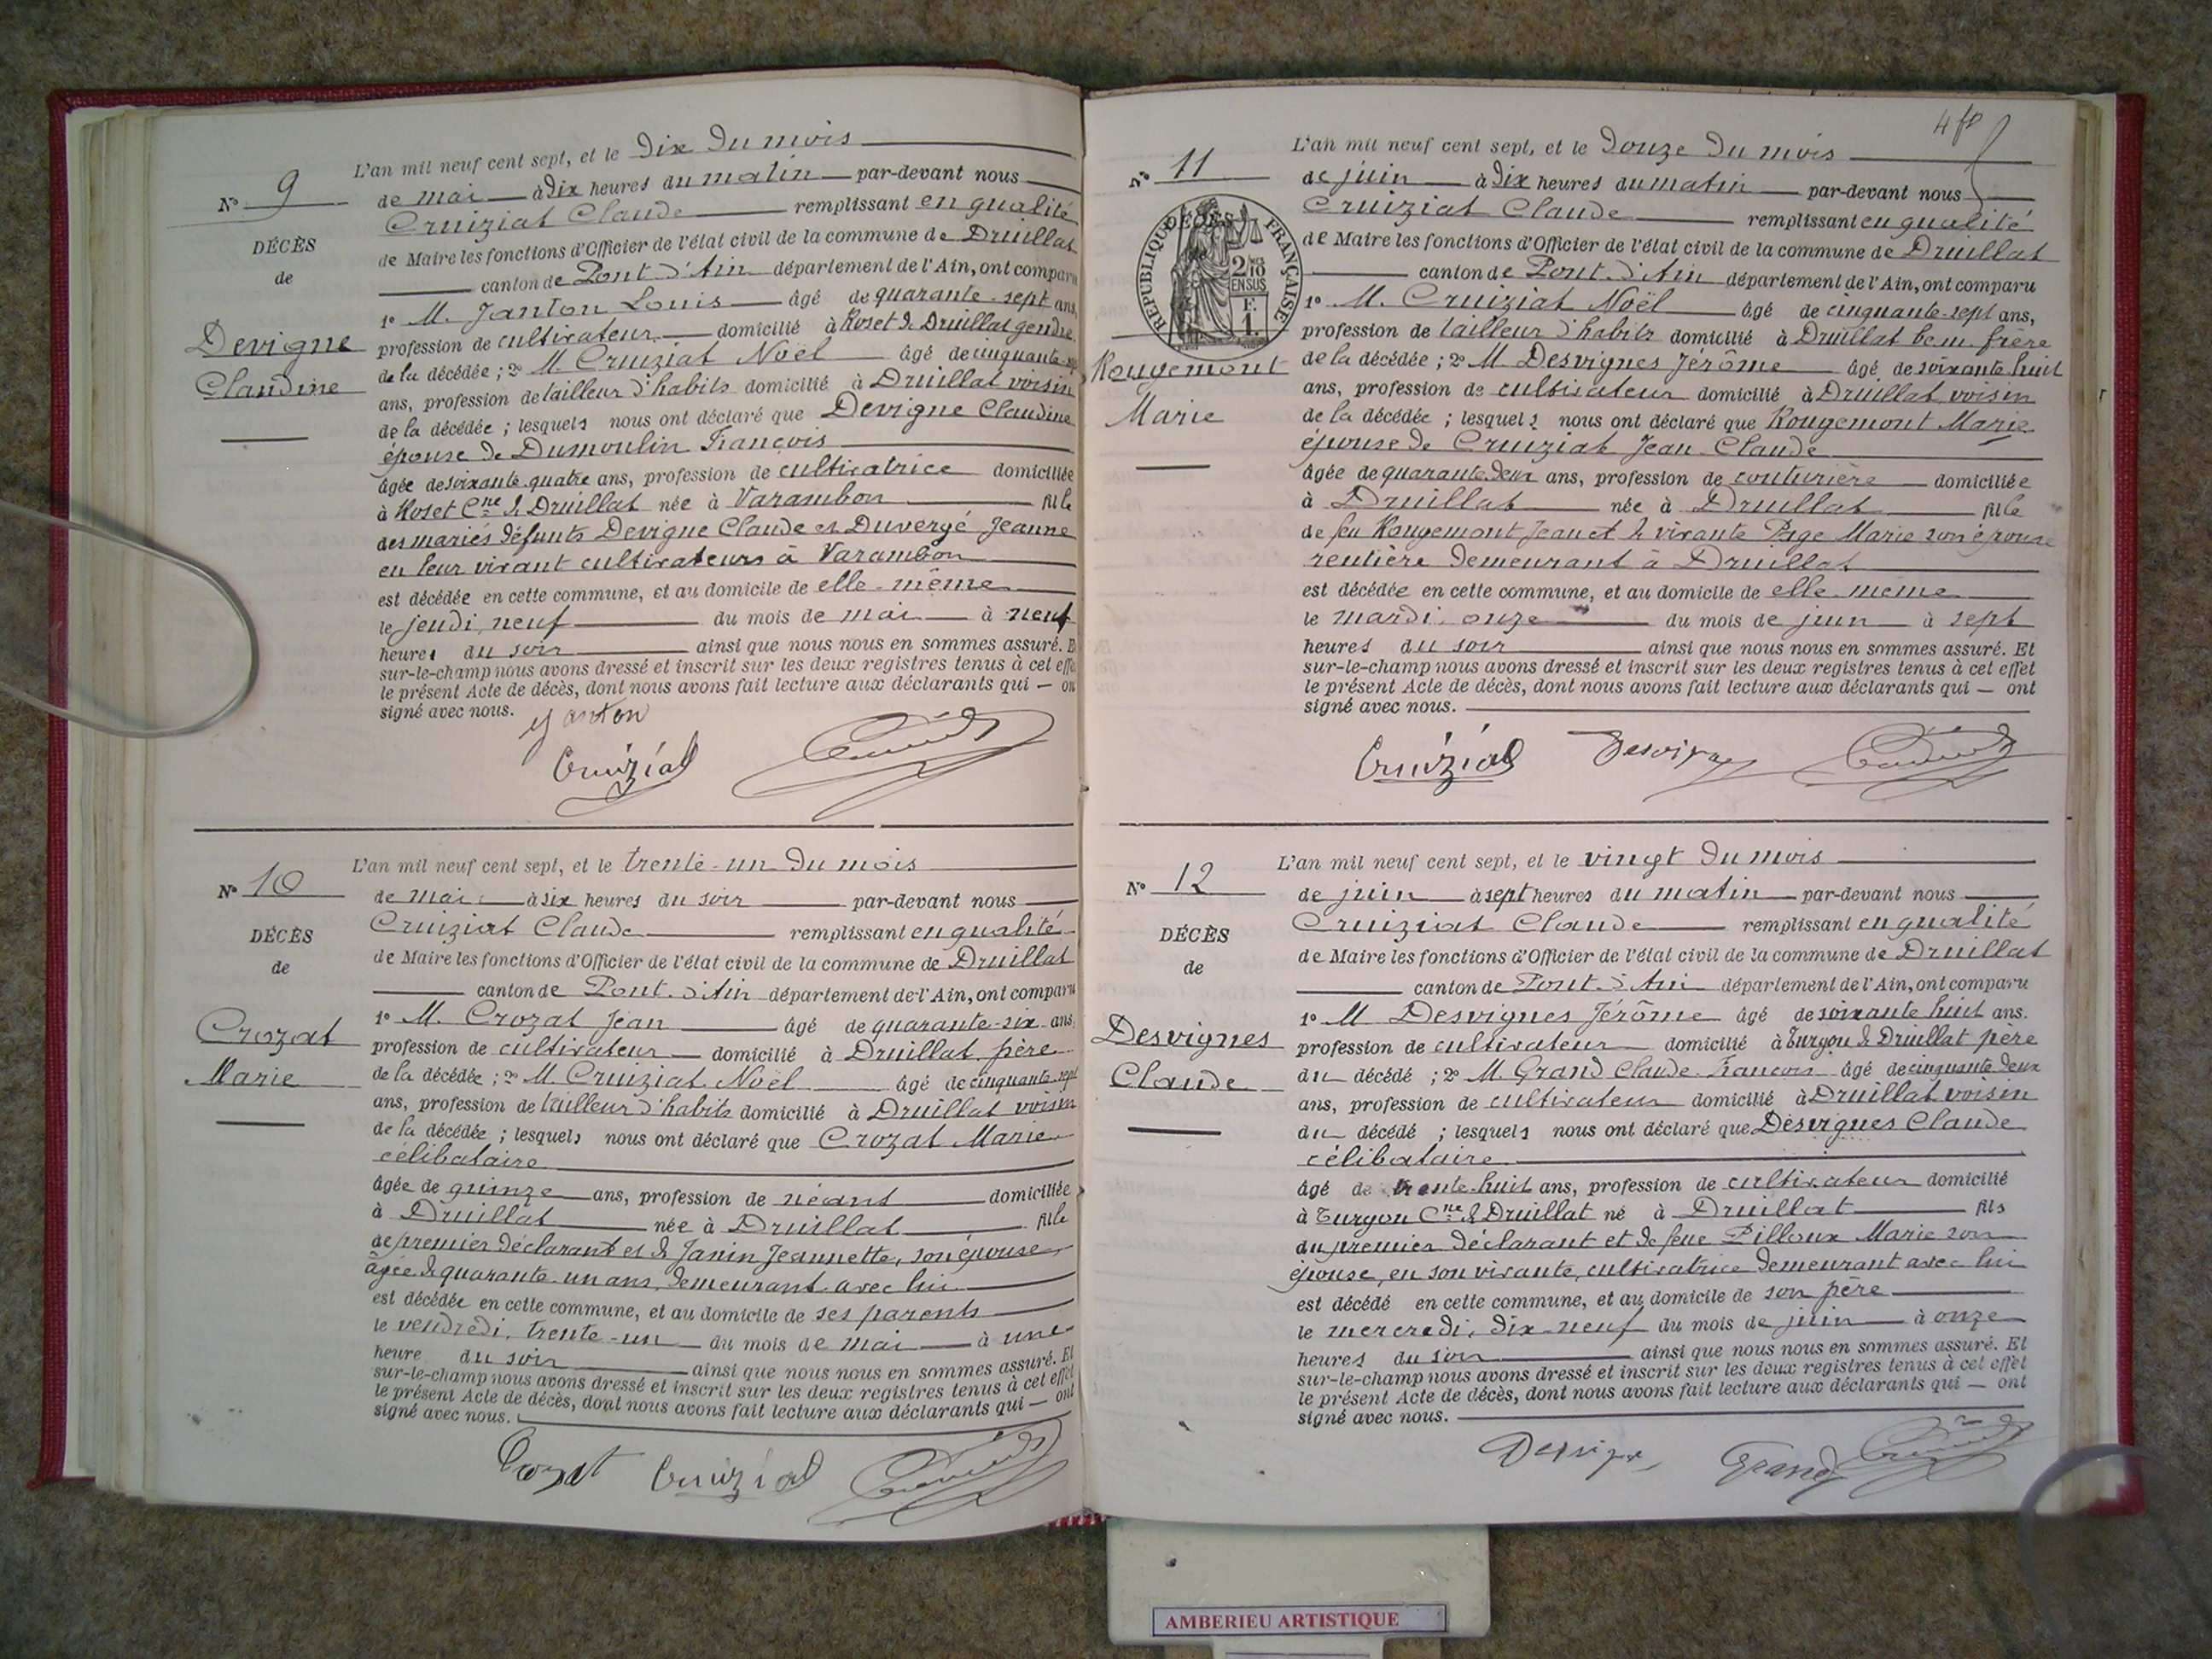 L'an mil neuf cent sept, et le dix du mois
N° 9
de mai à dix heures du matin par-devant nous
Cruiziat Claude remplissant en qualité
DÉCÈS
de Maire les fonctions d'Officier de l'état civil de la commune de Druillat
de
canton de Pont d'Ain département de l'Ain, ont comparu
1° M. Janton Louis âgé de quarante-sept ans,
Devigne
profession de cultivateur domicilié à Roset de Druillat gendre
de la décédée ; 2° M. Cruiziat Noël âgé de cinquante-
Claudine
ans, profession de tailleur d'habits domicilié à Druillat voisin
de la décédée ; lesquels nous ont déclaré que Devigne Claudine
épouse de Dumoulin François
âgée de soixante-quatre ans, profession de cultivatrice domiciliée
à Roset Cne de Druillat née à Varambon fille
des mariés défunts Devigne Claude et Duvergé Jeanne
en leur vivant cultivateurs à Varambon
est décédée en cette commune, et au domicile de elle-même
le jeudi, neuf du mois de mai à neuf
heures du soir ainsi que nous nous en sommes assuré. E
sur-le-champ nous avons dressé et inscrit sur les deux registres tenus à cet effe
le présent Acte de décès, dont nous avons fait lecture aux déclarants qui — on
signé avec nous.
Janton
Cruiziat
L'an mil neuf cent sept, et le trente-un du mois
N° 10
de mai à six heures du soir par-devant nous
Cruiziat Claude remplissant en qualité
DÉCÈS
de Maire les fonctions d'Officier de l'état civil de la commune de Druillat
de
canton de Pont-d'Ain département de l'Ain, ont comparu
1° M. Crozat Jean âgé de quarante-six ans,
Crozat
profession de cultivateur domicilié à Druillat, père
Marie
de la décédée ; 2° M. Cruiziat Noël âgé de cinquante-sept
ans, profession de tailleur d'habits domicilié à Druillat voisin
de la décédée ; lesquels nous ont déclaré que Crozat Marie
célibataire
âgée de quinze ans, profession de néant domiciliée
à Druillat née à Druillat fille
de premier déclarant et de Janin Jeannette, son épouse,
âgée de quarante-un ans, demeurant avec lui
est décédée en cette commune, et au domicile de ses parents
le vendredi, trente-un du mois de mai à une
heure du soir ainsi que nous nous en sommes assuré. Et
sur-le-champ nous avons dressé et inscrit sur les deux registres tenus à cet effet
le présent Acte de décès, dont nous avons fait lecture aux déclarants qui — ont
signé avec nous.
Crozat Cruiziat
L'an mil neuf cent sept, et le douze du mois
N° 11
de juin à dix heures du matin par-devant nous
Cruiziat Claude remplissant en qualité
DÉCÈS
RÉPUBLIQUE FRANÇAISE
2/10 EN SUS
F. 1.
de Maire les fonctions d'Officier de l'état civil de la commune de Druillat
canton de Pont-d'Ain département de l'Ain, ont comparu
1° M. Cruiziat Noël âgé de cinquante-sept ans,
profession de tailleur d'habits domicilié à Druillat beau-frère
Rougemont
de la décédée ; 2° M. Desvignes Jérôme âgé de soixante huit
ans, profession de cultivateur domicilié à Druillat voisin
Marie
de la décédée ; lesquels nous ont déclaré que Rougemont Marie
épouse de Cruiziat Jean-Claude
âgée de quarante-deux ans, profession de couturière domiciliée
à Druillat née à Druillat fille
de feu Rougemont Jean et de vivante Page Marie son épouse
rentière demeurant à Druillat
est décédée en cette commune, et au domicile de elle-même
le mardi, onze du mois de juin à sept
heures du soir ainsi que nous nous en sommes assuré. Et
sur-le-champ nous avons dressé et inscrit sur les deux registres tenus à cet effet
le présent Acte de décès, dont nous avons fait lecture aux déclarants qui — ont
signé avec nous.
Cruiziat
L'an mil neuf cent sept, et le vingt du mois
N° 12
de juin à sept heures du matin par-devant nous
Cruiziat Claude remplissant en qualité
DÉCÈS
de Maire les fonctions d'Officier de l'état civil de la commune de Druillat
de
canton de Pont-d'Ain département de l'Ain, ont comparu
1° M Desvignes Jérôme âgé de soixante huit ans.
Desvignes
profession de cultivateur domicilié à Turgon de Druillat père
Claude
du décédé ; 2° M. Grand Claude-François âgé de cinquante deux
ans, profession de cultivateur domicilié à Druillat voisin
du décédé ; lesquels nous ont déclaré que Desvignes Claude
célibataire
âgé de trente-huit ans, profession de cultivateur domicilié
à Turgon Cne de Druillat né à Druillat fils
du premier déclarant et de feue Pilloux Marie son
épouse, en son vivante, cultivatrice demeurant avec lui
est décédé en cette commune, et au domicile de son père
le mercredi, dix-neuf du mois de juin à onze
heures du soir ainsi que nous nous en sommes assuré. Et
sur-le-champ nous avons dressé et inscrit sur les deux registres tenus à cet effet
le présent Acte de décès, dont nous avons fait lecture aux déclarants qui — ont
signé avec nous.
Grand
AMBERIEU ARTISTIQUE